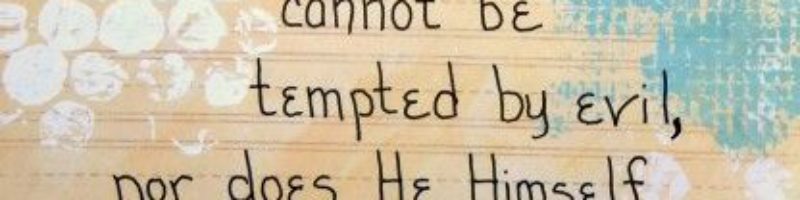 cannot be
tempted by evil,
nor does He Himself